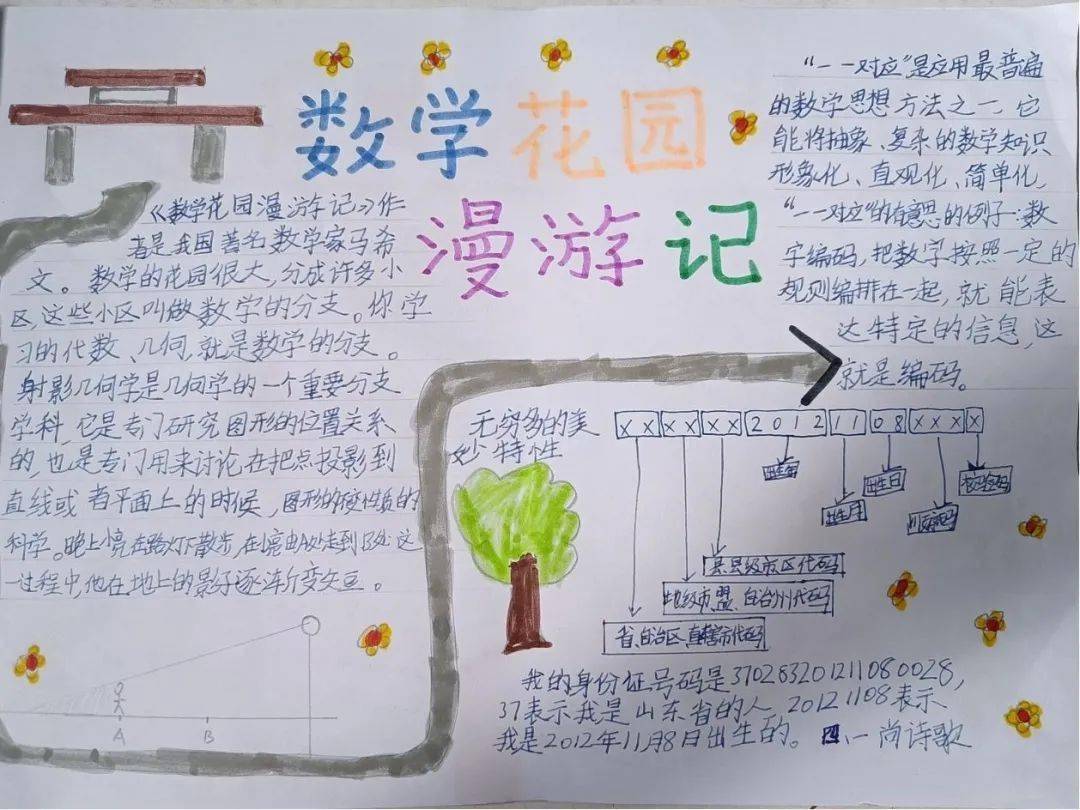 数学花园
漫游记
《数学花园漫游记》作
者是我国著名数学家马希
文。数学的花园很大,分成许多小
区,这些小区叫做数学的分支。你学
习的代数、几何,就是数学的分支。
射影几何学是几何学的一个重要分支
学科,它是专门研究图形的位置关系
的,也是专门用来讨论,在把点投影到
直线或者平面上的时候,图形的不变性质的
科学。晚上小亮在路灯下散步,在小亮由A处走到B处这
一过程中,他在地上的影子逐渐变
A
B
“一一对应”是应用最普遍
的数学思想方法之一,它
能将抽象、复杂的数学知识
形象化、直观化、简单化,
“一一对应”的有意思的例子:数
字编码,把数字按照一定的
规则编排在一起,就能表
达特定的信息,这
就是编码。
无穷多的美
妙特性
X X X X X X 2 0 1 2 1 1 0 8 X X X X
出生年
出生日
校验码
出生月
顺序码
县、县级市、区代码
地级市、盟、自治州代码
省、自治区、直辖市代码
我的身份证号码是370283201211080028,
37表示我是山东省的人,20121108表示
我是2012年11月8日出生的。 四、一 尚诗歌